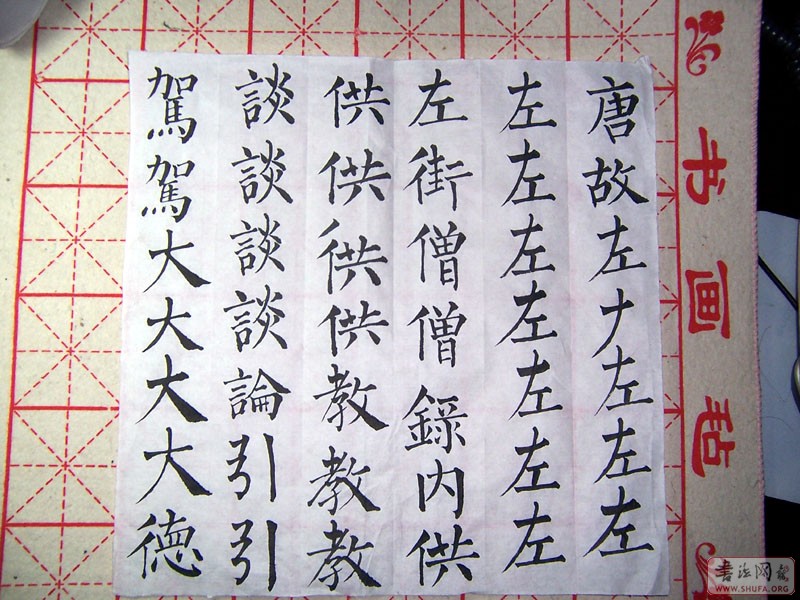 唐故左𠂇左左左
左左左左左左左
左街僧僧錄內供
供供供供教教教
談談談談論引引
駕駕大大大大德
书画毡
書法网
WWW.SHUFA.ORG